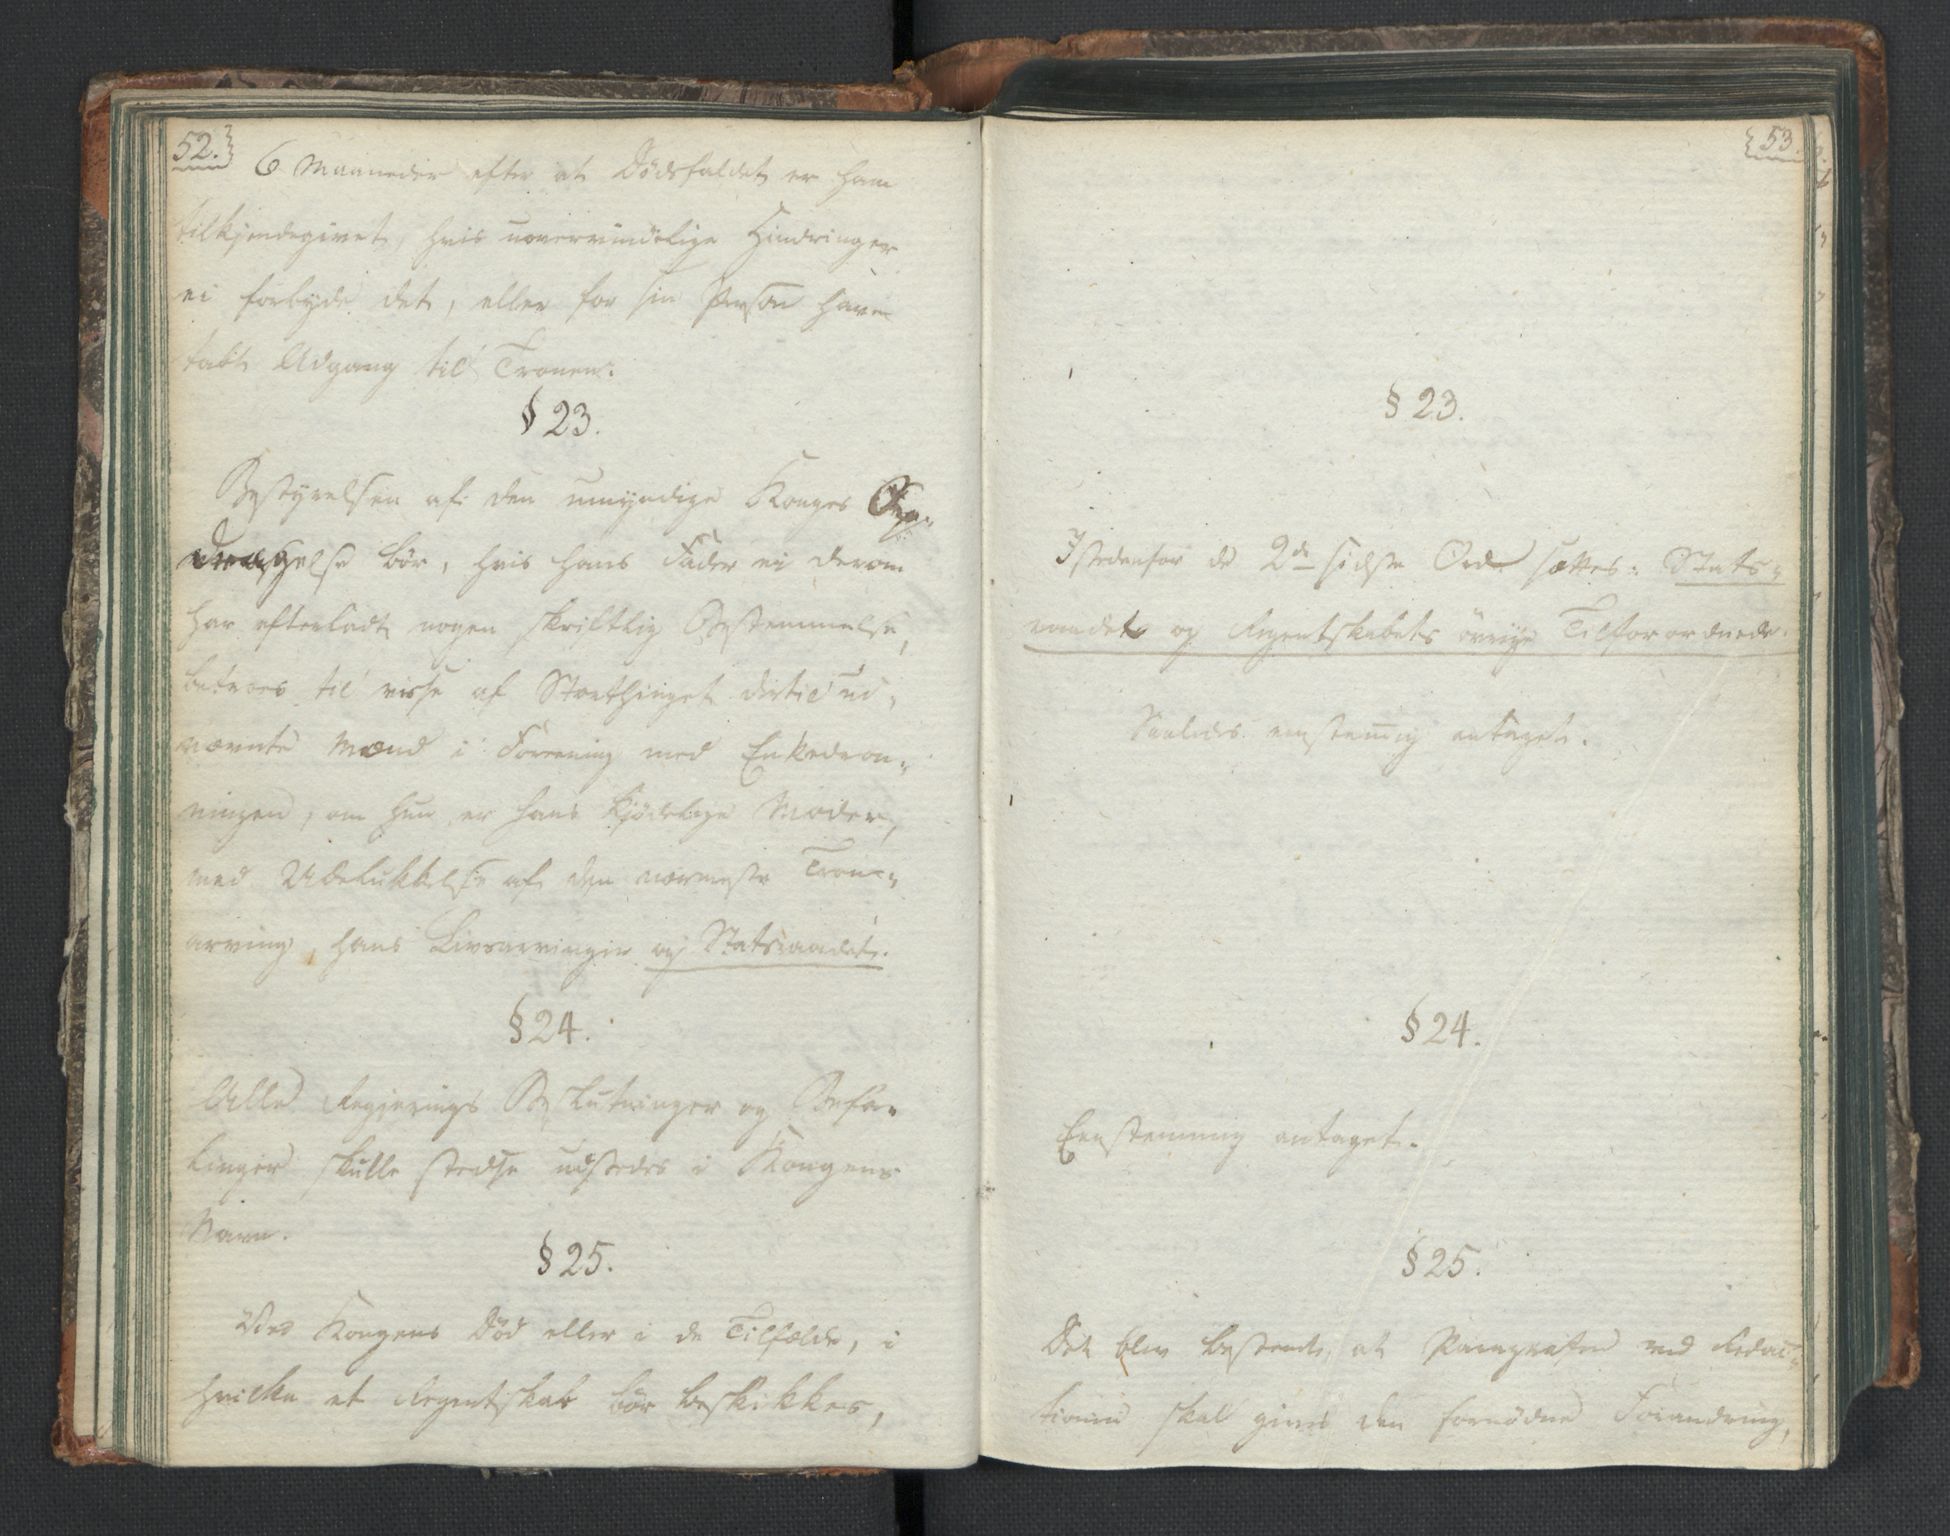 52.
6 Maaneder efter at Dødsfaldet er ham
tilkjendegivet, hvis uovervindelige Hindringer
ei forbyde det, eller for sin Person have
tabt Adgang til Tronen.
§ 23.
Bestyrelsen af den umyndige Konges Op-
dragelse bør, hvis hans Fader ei derom
har efterladt nogen skriftlig Bestemmelse,
betroes til visse af Storthinget dertil ud-
nævnte Mænd i Forening med Enkedron-
ningen, om hun er hans kjødelige Moder,
med Udelukkelse af den nærmeste Tron-
arving, hans Livsarvinger og Statsraadet.
§ 24.
Alle Regjerings Beslutninger og Befa-
linger skulle stedse udstedes i Kongens
Navn.
§ 25.
Ved Kongens Død eller i de Tilfælde, i
hvilke et Regentskab bør beskikkes,
53.
§ 23.
Istedenfor de 2de sidste Ord sættes: Stats-
raadet og Regentskabets øvrige Tilforordnede.
Saaledes eenstemig antaget.
§ 24.
Eenstemmig antaget.
§ 25.
Det blev bestemt, at Paragrafen ved Redac-
tionen skal gives den fornødne Forandring,